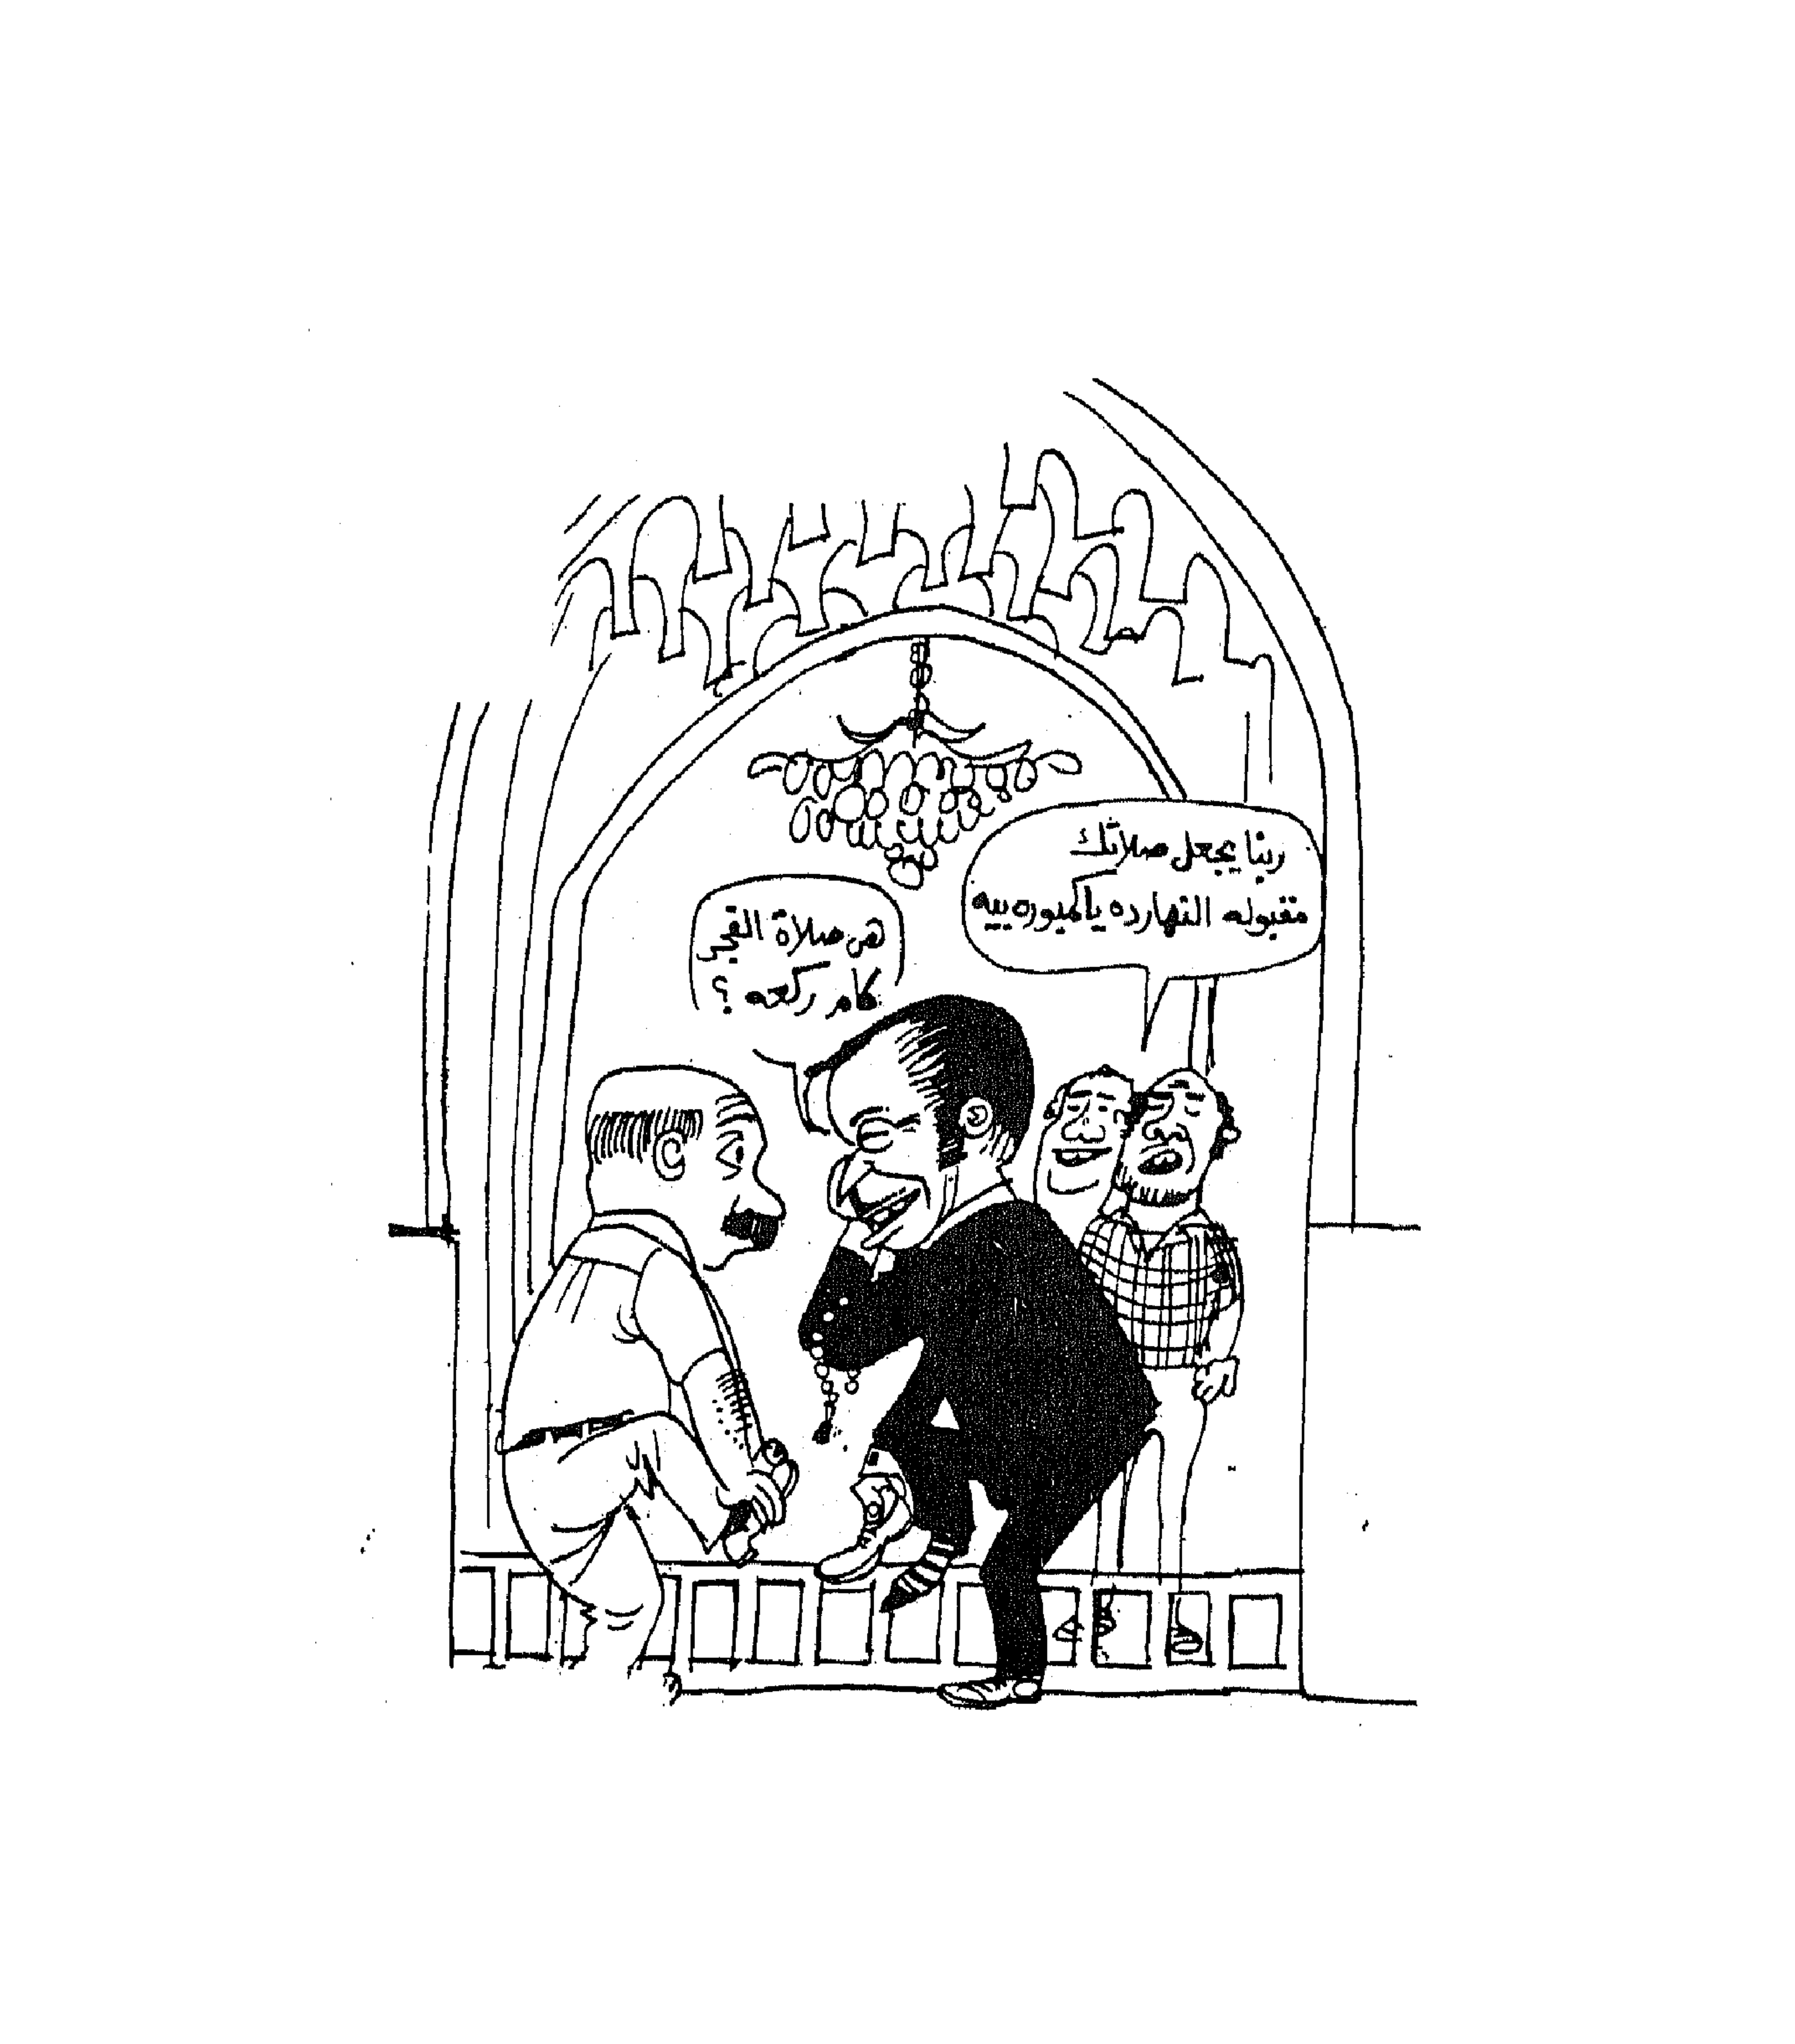 ربنا يجعل صلاتك
مقبوله النهارده يا كمبوره بيه
هى صلاة الفجر
كام ركعه ؟